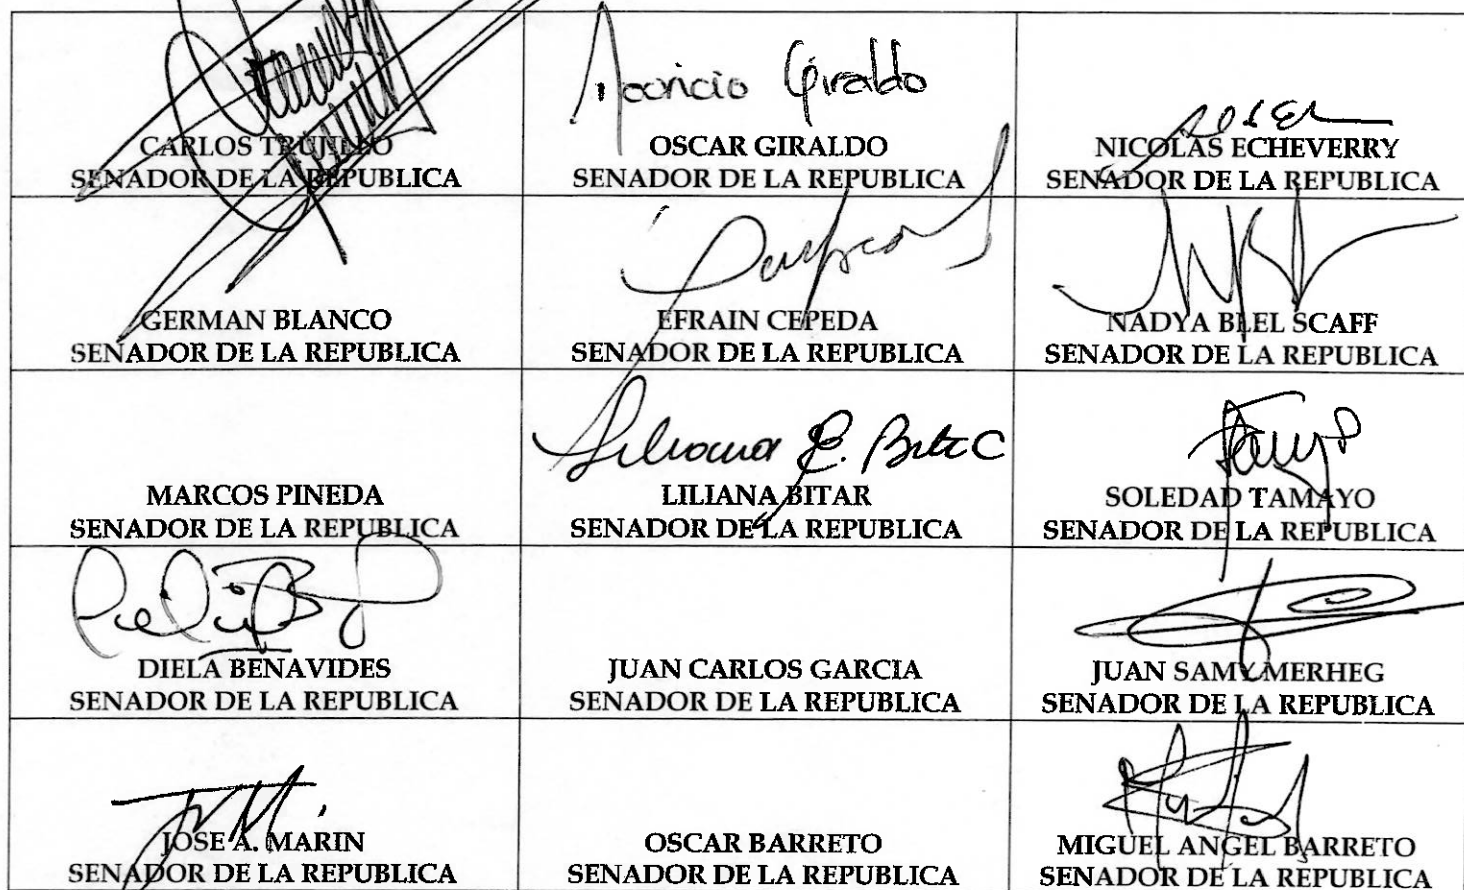 Mauricio Giraldo
CARLOS TRUJILLO
SENADOR DE LA REPUBLICA
OSCAR GIRALDO
SENADOR DE LA REPUBLICA
NICOLAS ECHEVERRY
SENADOR DE LA REPUBLICA
GERMAN BLANCO
SENADOR DE LA REPUBLICA
EFRAIN CEPEDA
SENADOR DE LA REPUBLICA
NADYA BLEL SCAFF
SENADOR DE LA REPUBLICA
MARCOS PINEDA
SENADOR DE LA REPUBLICA
Liliana E. Bitar C
LILIANA BITAR
SENADOR DE LA REPUBLICA
SOLEDAD TAMAYO
SENADOR DE LA REPUBLICA
DIELA BENAVIDES
SENADOR DE LA REPUBLICA
JUAN CARLOS GARCIA
SENADOR DE LA REPUBLICA
JUAN SAMY MERHEG
SENADOR DE LA REPUBLICA
JOSE A. MARIN
SENADOR DE LA REPUBLICA
OSCAR BARRETO
SENADOR DE LA REPUBLICA
MIGUEL ANGEL BARRETO
SENADOR DE LA REPUBLICA